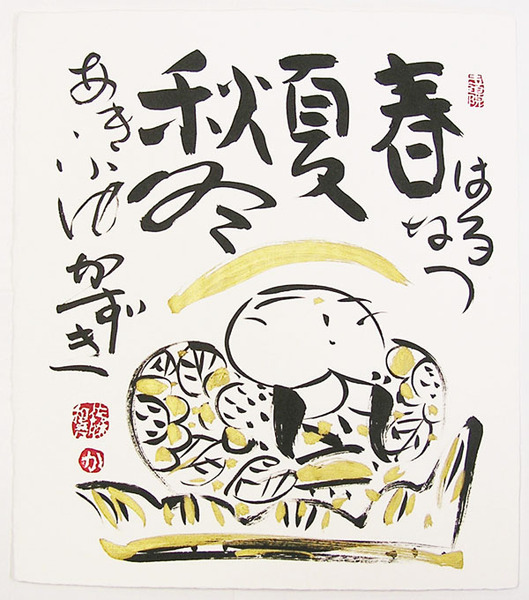 はる
なつ
春
夏
秋冬
あきふゆ かずき
か